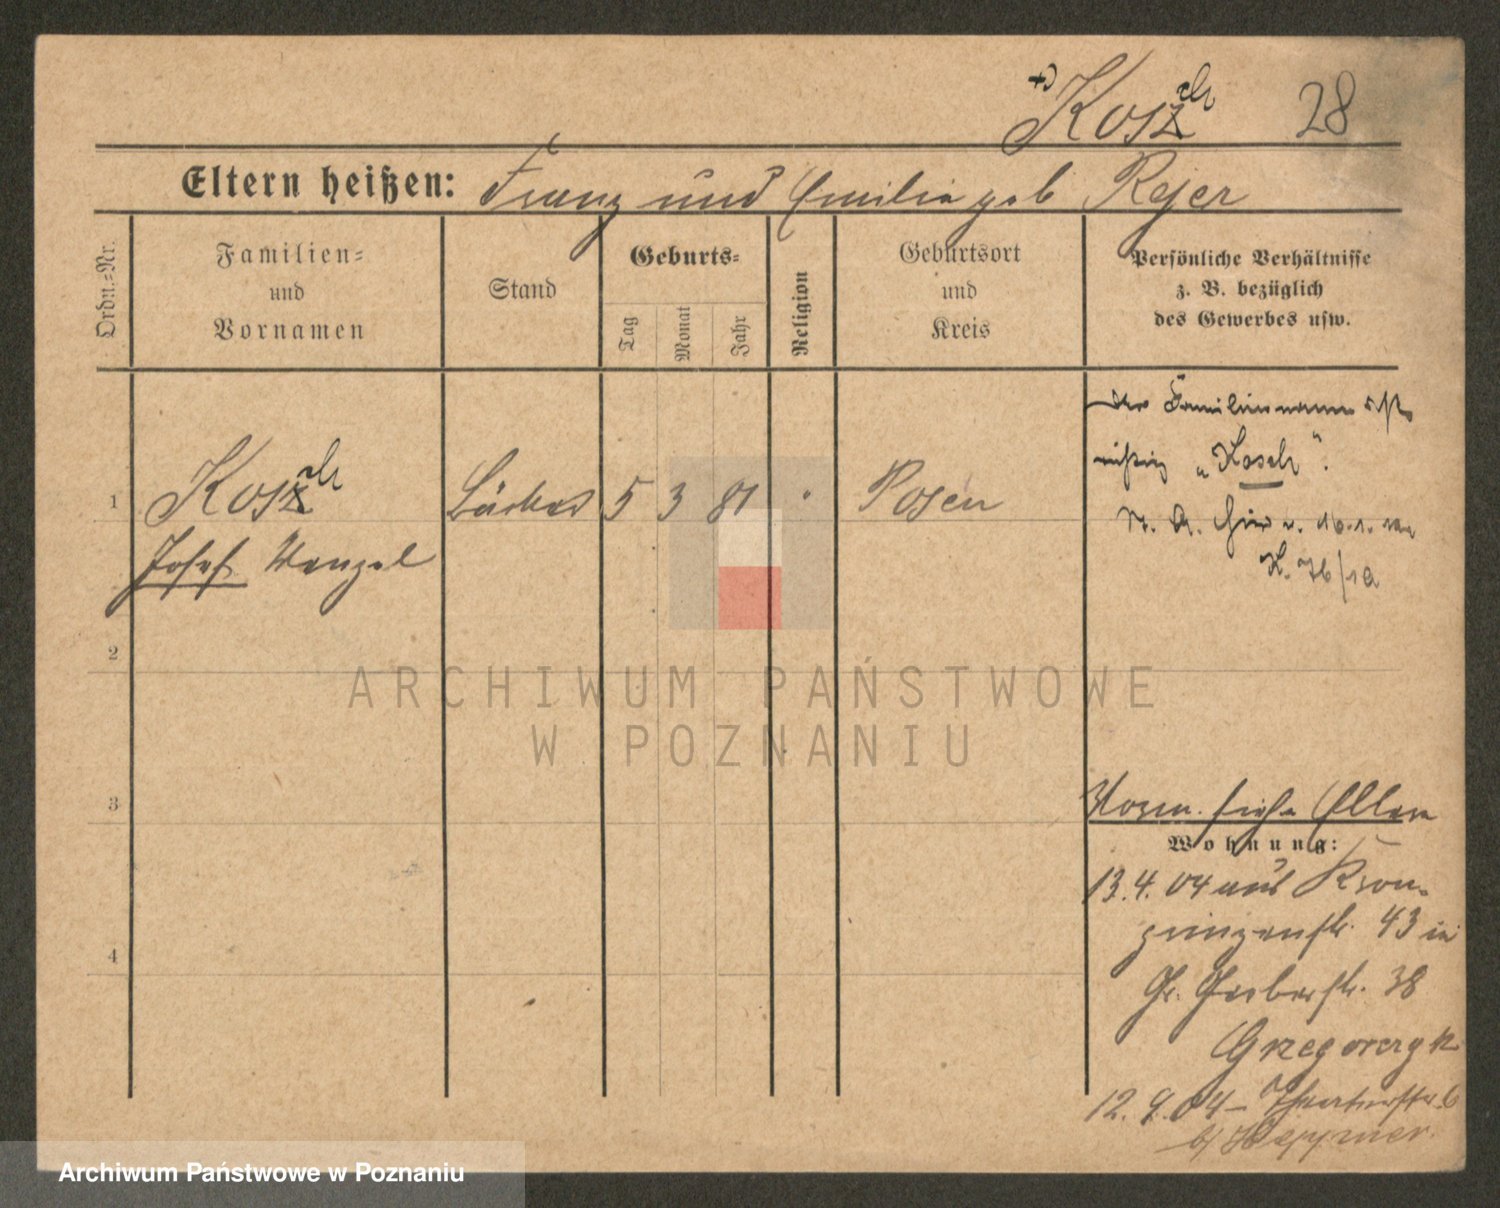 Kosch 28
Eltern heißen: Franz und Emilie geb Rejer
Ordn.-Nr.
Familien-
und
Vornamen
Stand
Geburts-
Tag
Monat
Jahr
Religion
Geburtsort
und
Kreis
Persönliche Verhältnisse
z. B. bezüglich
des Gewerbes usw.
1
Kosch
Josef Wenzel
Bäcker
5 3 81
Posen
der Familienname ist
richtig „Kosch".
2
3
4
Vorm. siehe Eltern
Wohnung:
13.4.04 aus Kron-
prinzenstr. 43 in
Gr. Gerberstr. 38
Grzegorczyk
12.9.04 – Theaterstr. 6
b/
ARCHIWUM PAŃSTWOWE
W POZNANIU
Archiwum Państwowe w Poznaniu